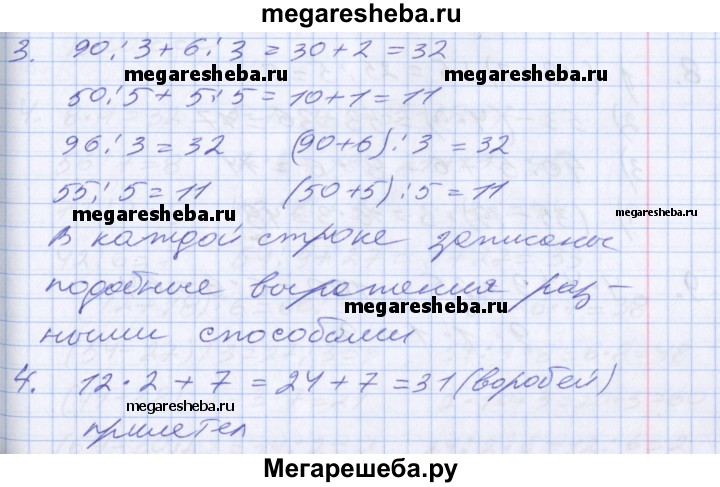 megaresheba.ru
3. 90:3+6:3=30+2=32
megaresheba.ru megaresheba.ru
50:5+5:5=10+1=11
96:3=32 (90+6):3=32
55:5=11 (50+5):5=11
megaresheba.ru megaresheba.ru
В каждой строке записаны
подобные выражения раз-
megaresheba.ru
ными способами
4. 12·2+7=24+7=31(воробей)
megaresheba.ru
прилетел
Мегарешеба.ру